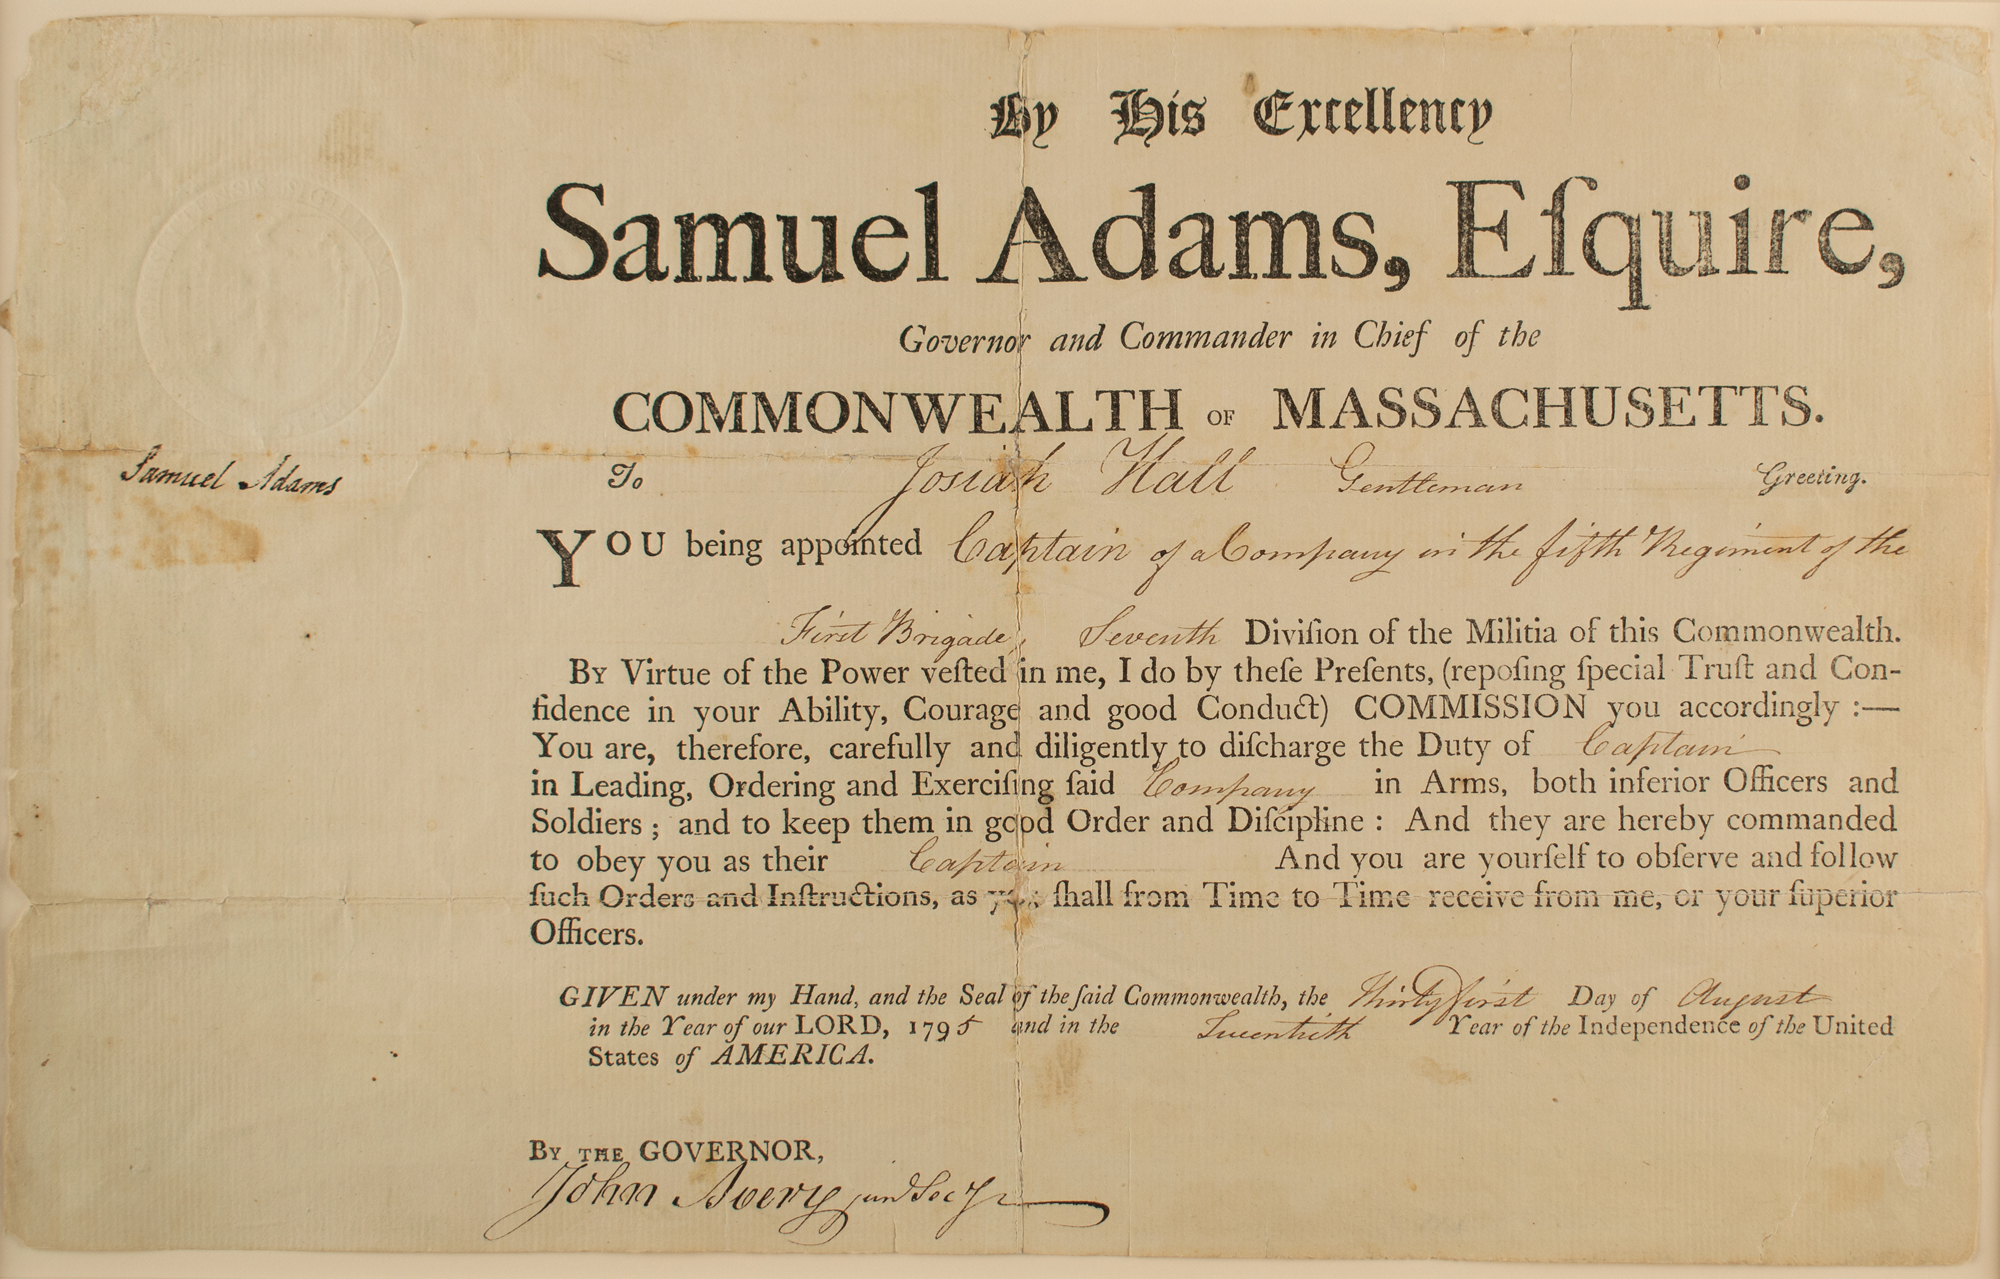 By His Excellency
Samuel Adams, Eſquire,
Governor and Commander in Chief of the
COMMONWEALTH OF MASSACHUSETTS.
Samuel Adams
To Josiah Hall Gentleman Greeting.
YOU being appointed Captain of a Company in the fifth Regiment of the
First Brigade, Seventh Diviſion of the Militia of this Commonwealth.
By Virtue of the Power veſted in me, I do by theſe Preſents, (repoſing ſpecial Truſt and Con-
fidence in your Ability, Courage and good Conduct) COMMISSION you accordingly :—
You are, therefore, carefully and diligently to diſcharge the Duty of Captain
in Leading, Ordering and Exerciſing ſaid Company in Arms, both inferior Officers and
Soldiers ; and to keep them in good Order and Diſcipline : And they are hereby commanded
to obey you as their Captain And you are yourſelf to obſerve and follow
ſuch Orders and Inſtructions, as you ſhall from Time to Time receive from me, or your ſuperior
Officers.
GIVEN under my Hand, and the Seal of the ſaid Commonwealth, the Thirty first Day of August
in the Year of our LORD, 1795 and in the Twentieth Year of the Independence of the United
States of AMERICA.
By the GOVERNOR,
John Avery junr Secy